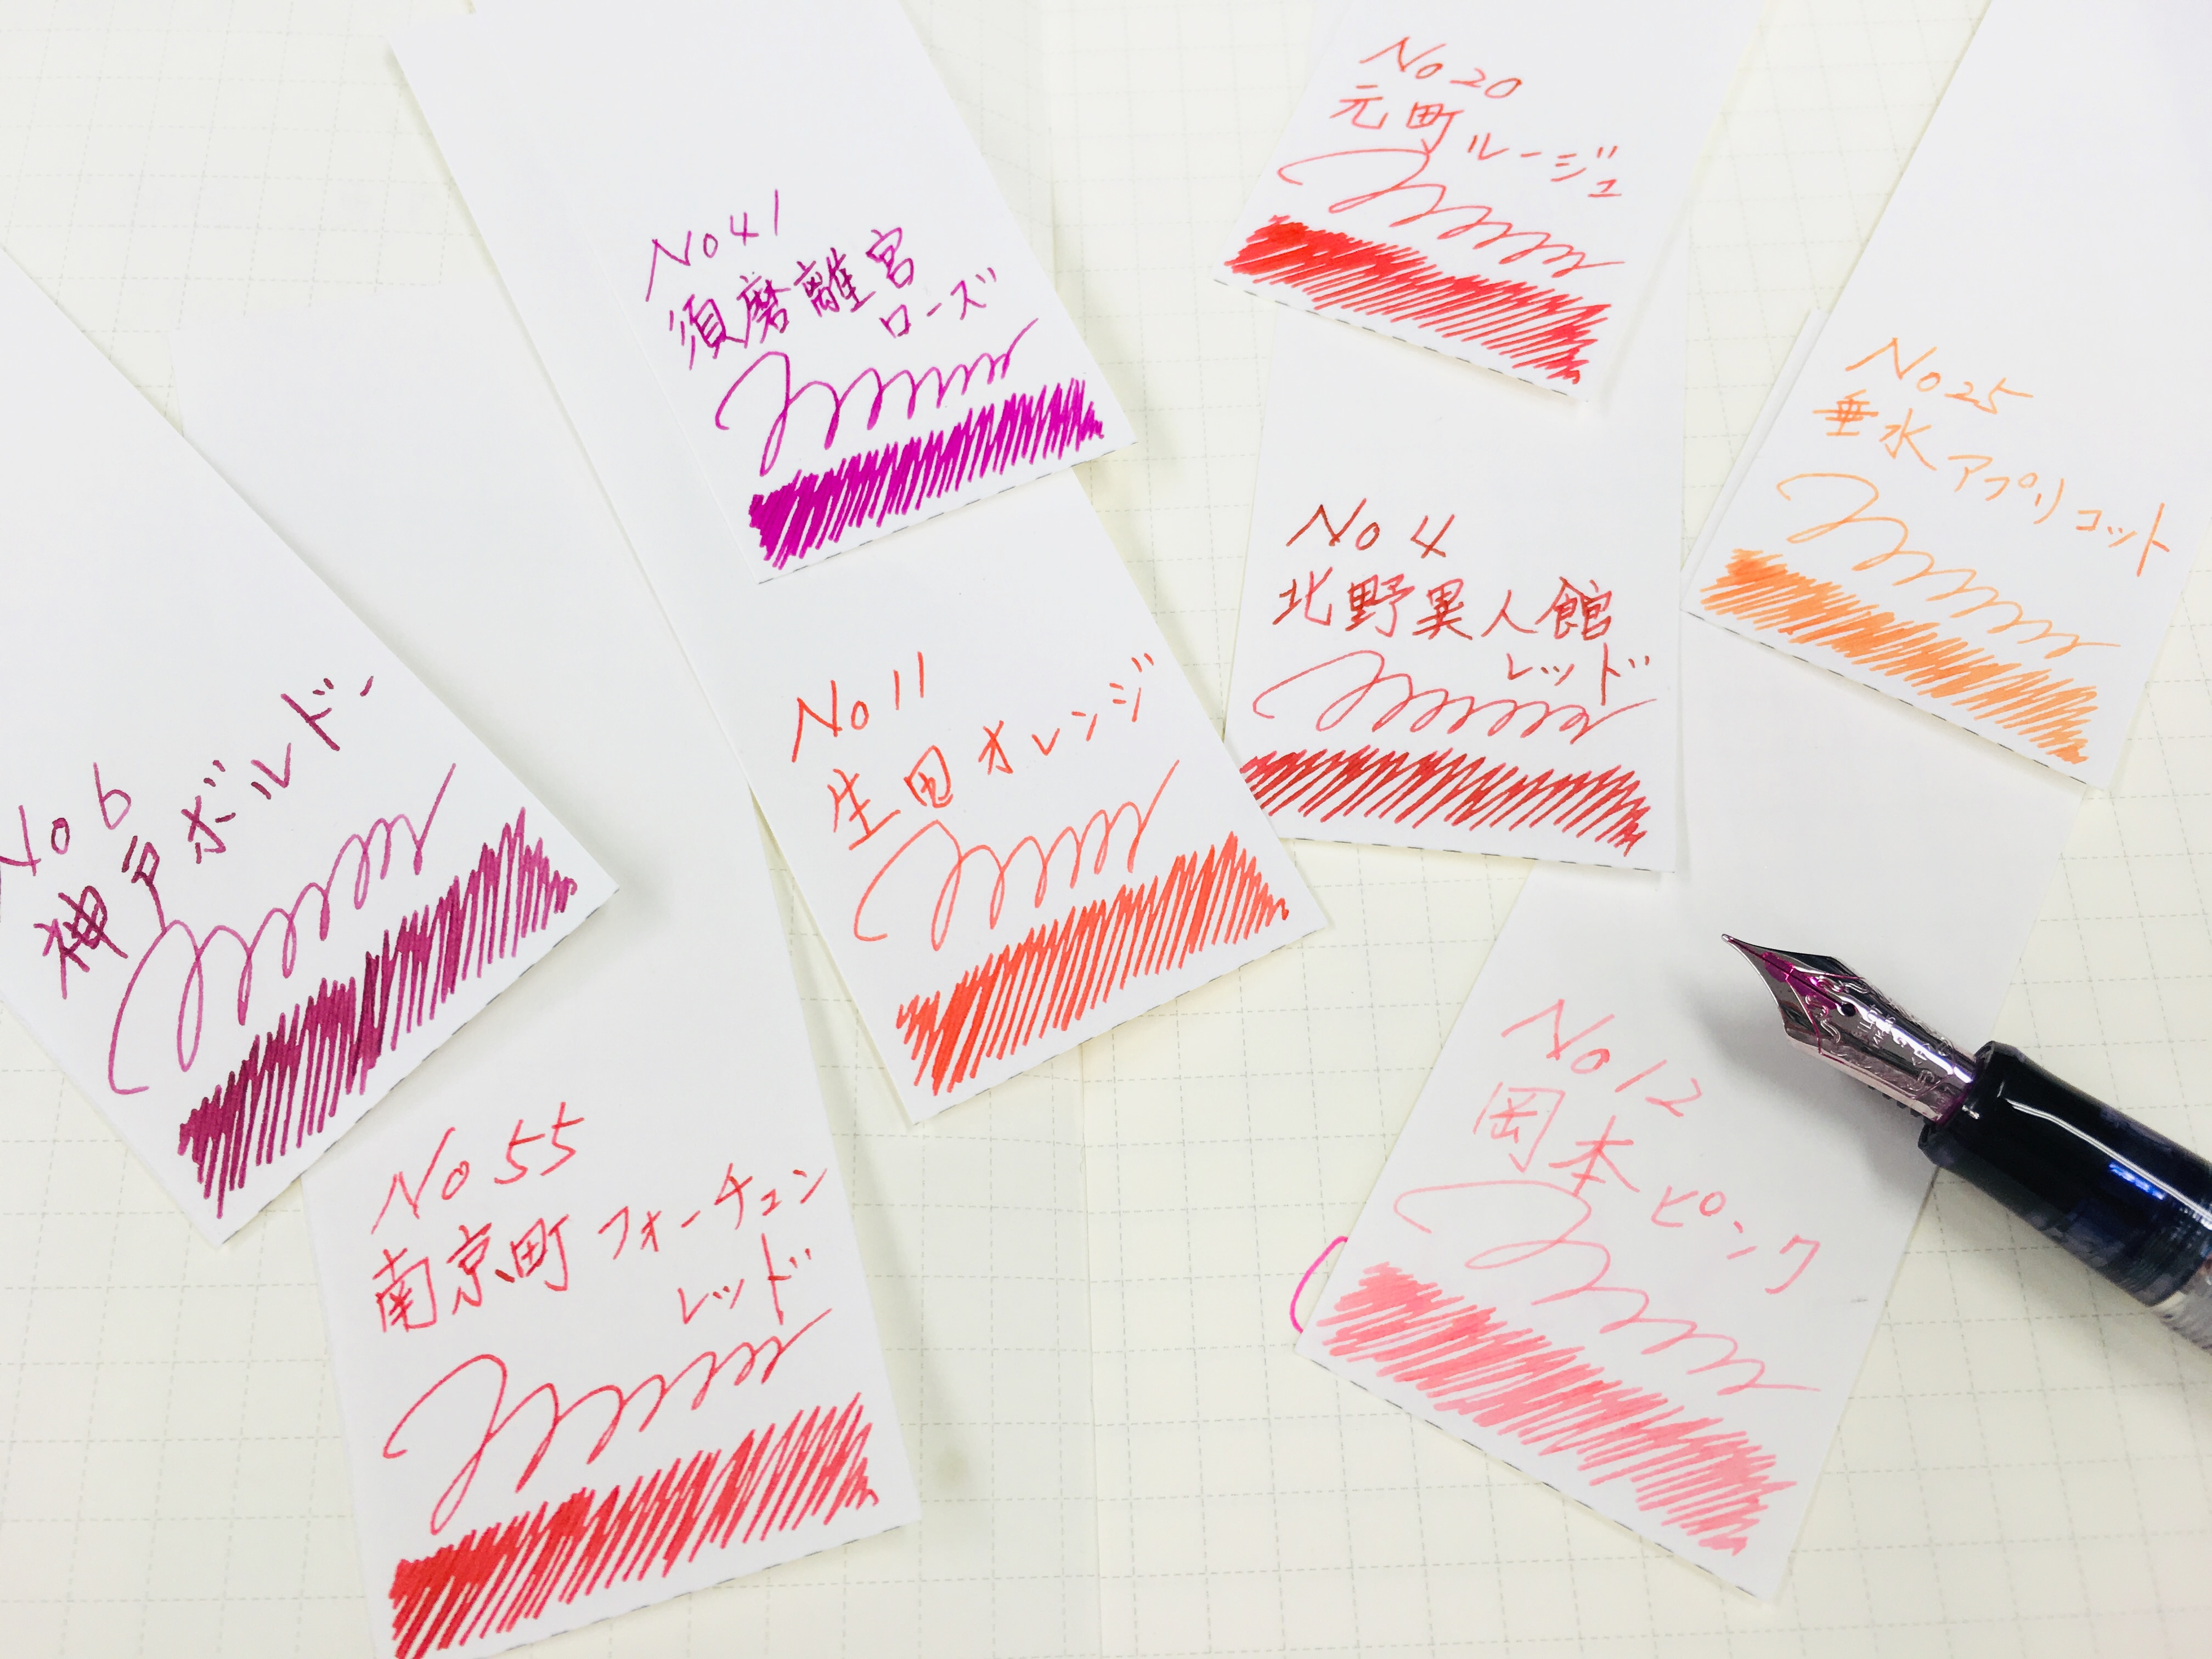 No 41
須磨離宮
ローズ
No 20
元町ルージュ
No 25
垂水アプリコット
No 4
北野異人館
レッド
No 11
生田オレンジ
No 6
神戸ボルドー
No 55
南京町フォーチュン
レッド
No 12
岡本ピンク